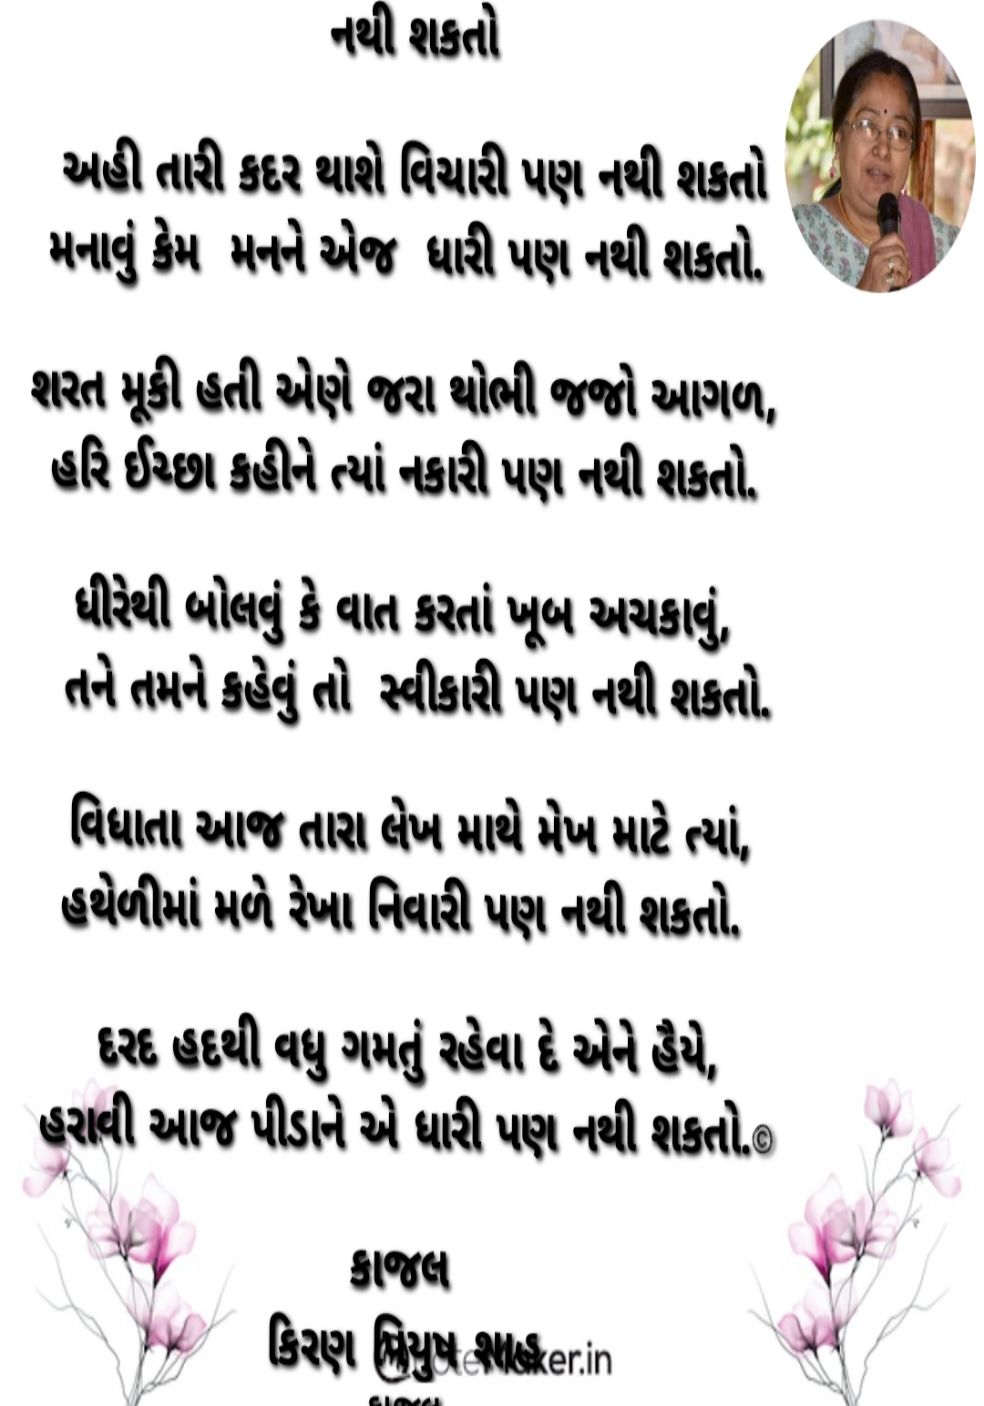 નથી શકતો
અહી તારી કદર થાશે વિચારી પણ નથી શકતો
મનાવું કેમ મનને એજ ધારી પણ નથી શકતો.
શરત મૂકી હતી એણે જરા થોભી જજો આગળ,
હરિ ઈચ્છા કહીને ત્યાં નકારી પણ નથી શકતો.
ધીરેથી બોલવું કે વાત કરતાં ખૂબ અચકાવું,
તને તમને કહેવું તો સ્વીકારી પણ નથી શકતો.
વિધાતા આજ તારા લેખ માથે મેખ માટે ત્યાં,
હથેળીમાં મળે રેખા નિવારી પણ નથી શકતો.
દરદ હદથી વધુ ગમતું રહેવા દે એને હૈયે,
હરાવી આજ પીડાને એ ધારી પણ નથી શકતો.©
કાજલ
કિરણ પિયુષ શાહ
કાજલ